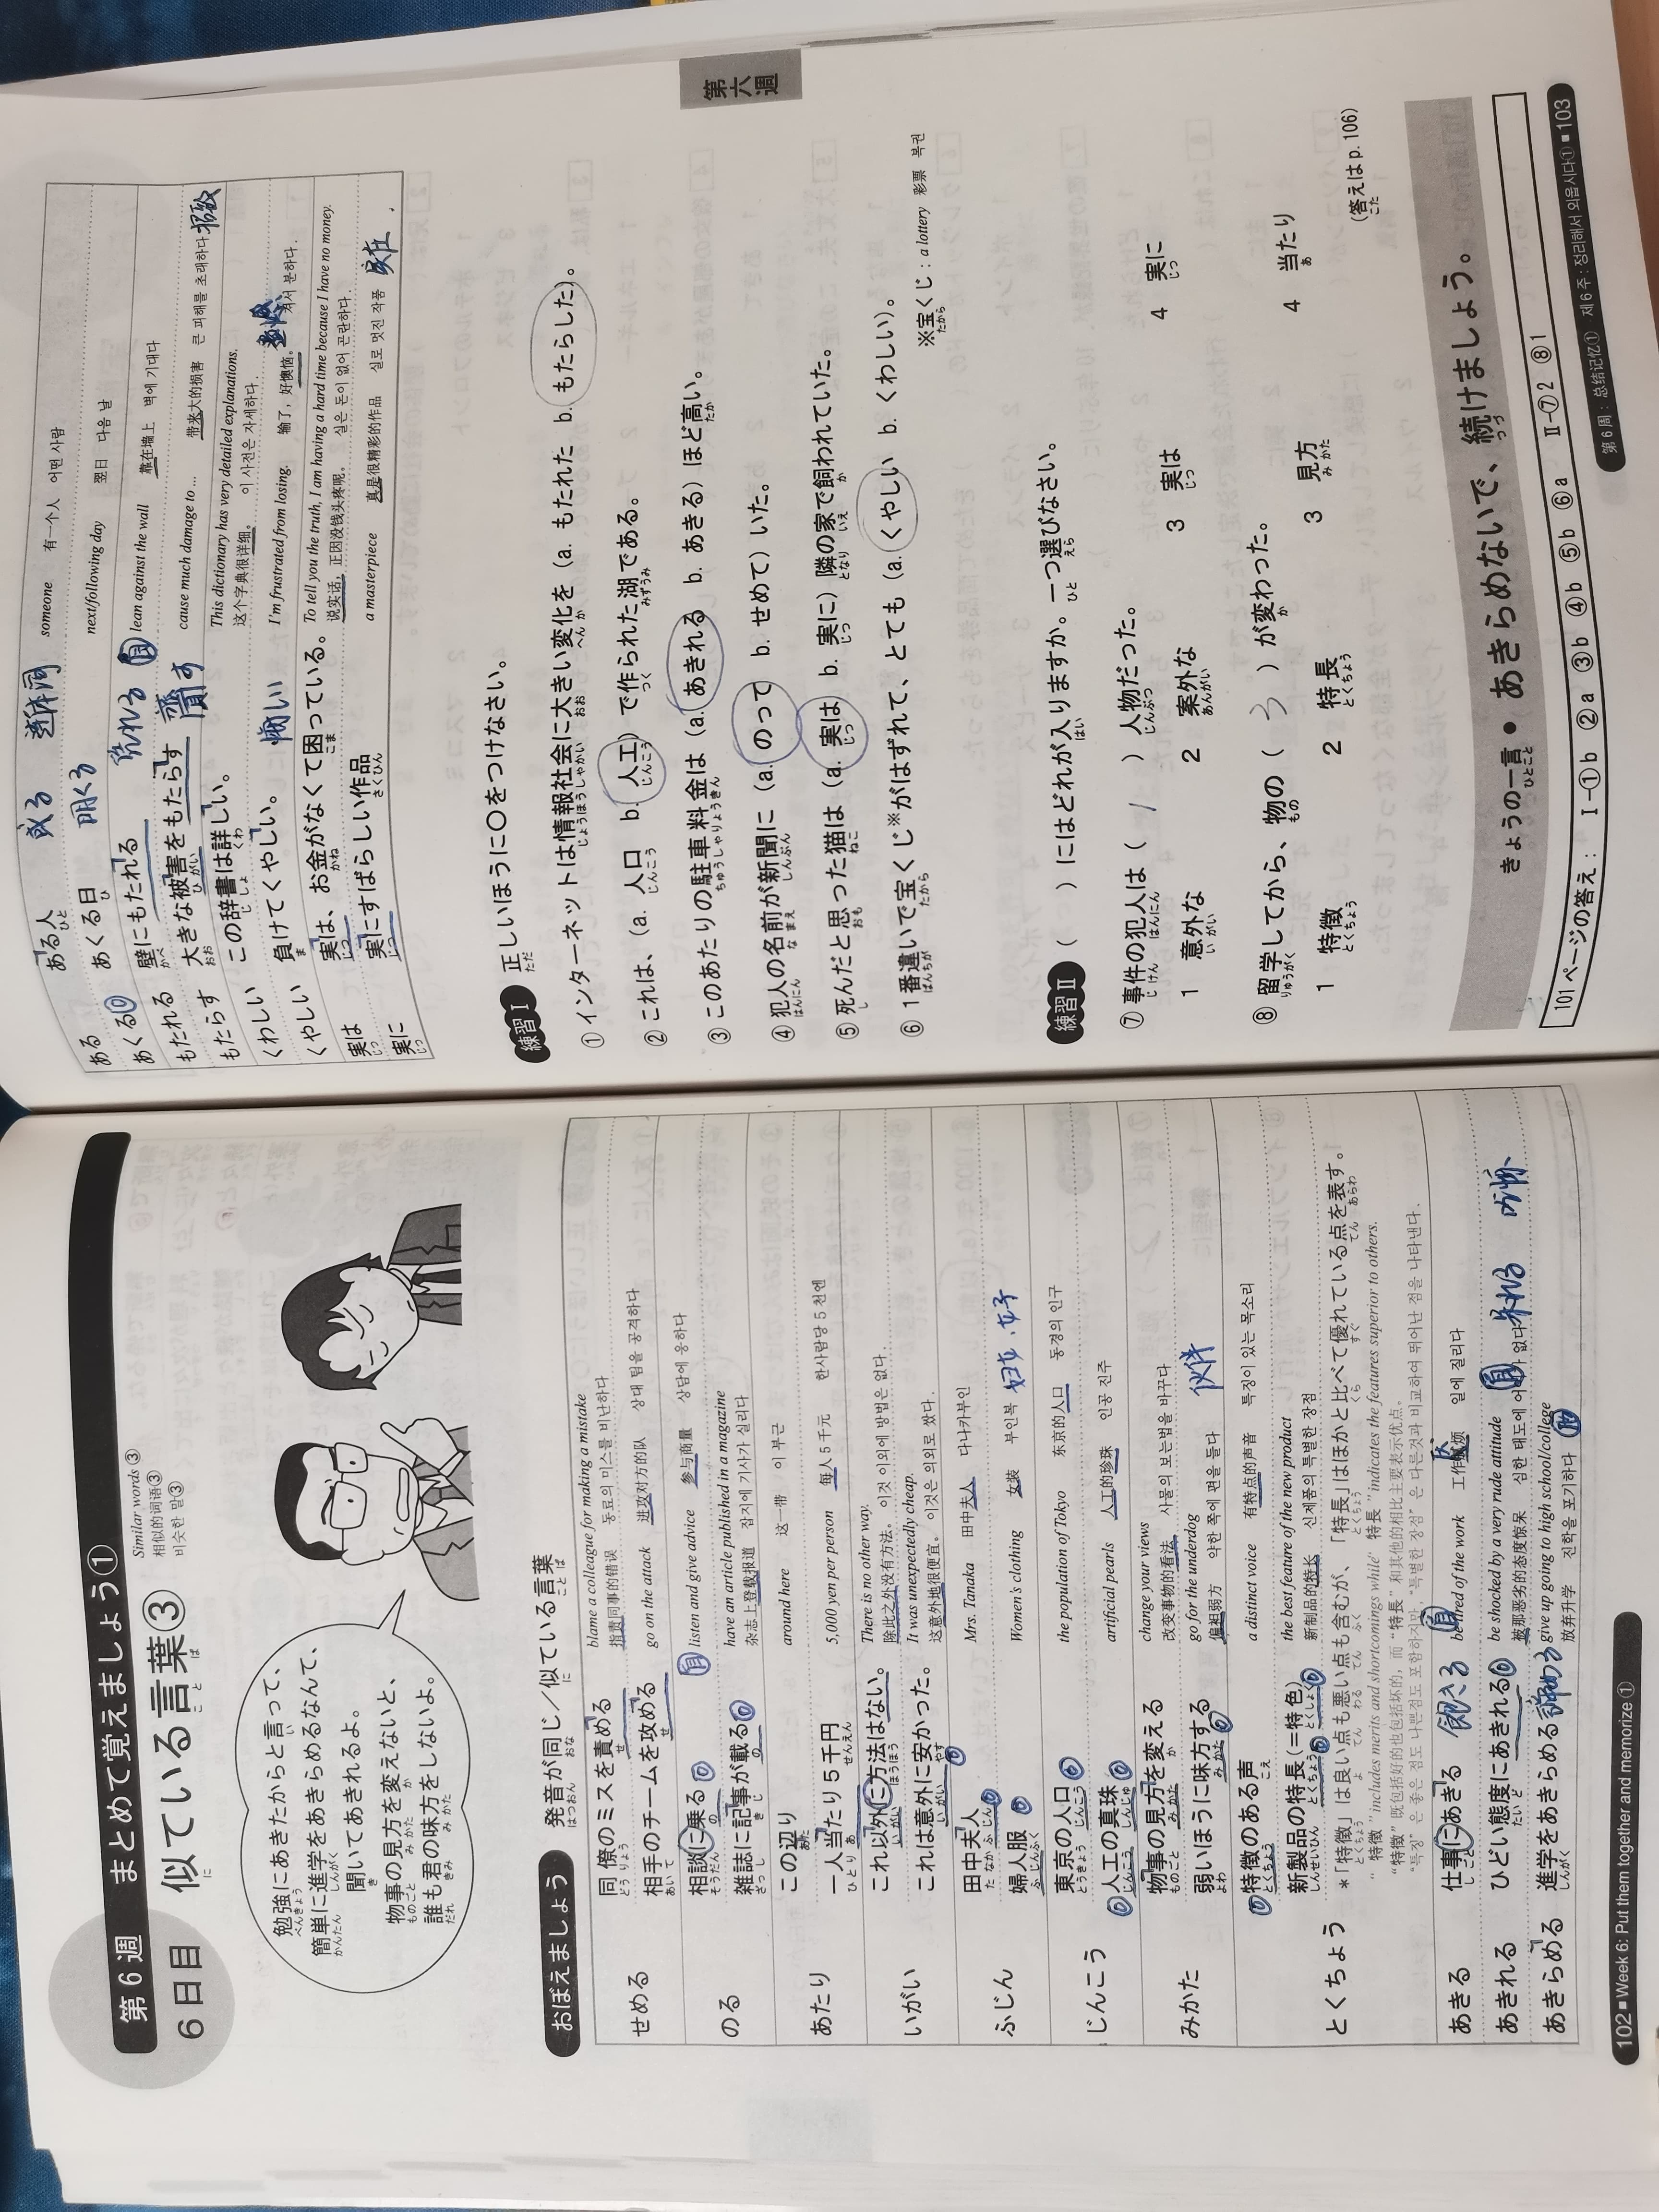 第6週 まとめて覚えましょう①
6日目 似ている言葉③
Similar words ③
相似的词语③
비슷한 말③
勉強にあきたからと言って、
簡単に進学をあきらめるなんて、
聞いてあきれるよ。
物事の見方を変えないと、
誰も君の味方をしないよ。
おぼえましょう 発音が同じ/似ている言葉
せめる 同僚のミスを責める blame a colleague for making a mistake
指责同事的错误 동료의 미스를 비난하다
相手のチームを攻める go on the attack 进攻对方的队 상대 팀을 공격하다
のる 相談に乗る listen and give advice 参与商量 상담에 응하다
雑誌に記事が載る have an article published in a magazine
杂志上登载报道 잡지에 기사가 실리다
あたり この辺り around there 这一带 이 부근
一人当たり5千円 5,000 yen per person 每人5千元 한사람당 5천엔
いがい これ以外に方法はない。 There is no other way.
除此之外没有方法。 이것 이외에 방법은 없다.
これは意外に安かった。 It was unexpectedly cheap.
这意外地很便宜。 이것은 의외로 쌌다.
ふじん 田中夫人 Mrs. Tanaka 田中夫人 다나카부인
婦人服 Women's clothing 女装 부인복 妇女.女子
じんこう 東京の人口 the population of Tokyo 东京的人口 동경의 인구
人工の真珠 artificial pearls 人工的珍珠 인공 진주
みかた 物事の見方を変える change your views
改变事物的看法 사물의 보는법을 바꾸다
弱いほうに味方する go for the underdog
偏袒弱方 약한 쪽에 편을 들다 伙伴
とくちょう 特徴のある声 a distinct voice 有特点的声音 특징이 있는 목소리
新製品の特長(=特色) the best feature of the new product
新制品的特长 신제품의 특별한 장점
*「特徴」は良い点も悪い点も含むが、「特長」はほかと比べて優れている点を表す。
"特徴" includes merits and shortcomings while" 特長 "indicates the features superior to others.
"特徴" 既包括好的也包括坏的，而 "特長" 和其他的相比主要表示优点。
"특징"은 좋은 점도 나쁜점도 포함하지만 "특별한 장점"은 다른것과 비교하여 뛰어난 점을 나타낸다.
あきる 仕事にあきる 飽きる be tired of the work 일에 질리다
あきれる ひどい態度にあきれる be shocked by a very rude attitude
被那恶劣的态度惊呆 呆れる
あきらめる 進学をあきらめる 諦める give up going to high school/college
放弃升学 진학을 포기하다
102 ■ Week 6: Put them together and memorize ①
ある ある人 或る someone 有一个人 어떤 사람
あくる あくる日 明くる next/following day 翌日 다음 날
もたれる 壁にもたれる lean against the wall 靠在墙上 벽에 기대다
もたらす 大きな被害をもたらす cause much damage to ... 带来大的损害 큰 피해를 초래하다
くわしい この辞書は詳しい。 This dictionary has very detailed explanations.
这个字典很详细。 이 사전은 자세하다.
くやしい 負けてくやしい。 悔しい I'm frustrated from losing. 输了，好懊恼。
実は 実は、お金がなくて困っている。 To tell you the truth, I am having a hard time because I have no money.
说实话，正因没钱头疼呢。 실은 돈이 없어 곤란하다.
実に 実にすばらしい作品 a masterpiece 真是很精彩的作品 실로 멋진 작품 实在
第六週
練習Ⅰ 正しいほうに○をつけなさい。
① インターネットは情報社会に大きい変化を (a. もたれた b. もたらした)。
② これは、(a. 人口 b. 人工) で作られた湖である。
③ このあたりの駐車料金は (a. あきれる b. あきる) ほど高い。
④ 犯人の名前が新聞に (a. のって b. せめて) いた。
⑤ 死んだと思った猫は (a. 実は b. 実に) 隣の家で飼われていた。
⑥ 1番違いで宝くじ※がはずれて、とても (a. くやしい b. くわしい)。
※宝くじ : a lottery 彩票 복권
練習Ⅱ ( )にはどれが入りますか。一つ選びなさい。
⑦ 事件の犯人は ( 1 ) 人物だった。
1 意外な 2 案外な 3 実は 4 実に
⑧ 留学してから、物の ( 3 ) が変わった。
1 特徴 2 特長 3 見方 4 当たり
(答えは p.106)
きょうの一言 ● あきらめないで、続けましょう。
101ページの答え: Ⅰ-①b ②a ③b ④b ⑤b ⑥a Ⅱ-⑦2 ⑧1
第6周：总结记忆① 제6주 : 정리해서 외웁시다① ■ 103